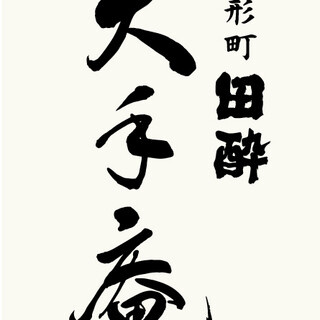 形町
田酔
大手庵